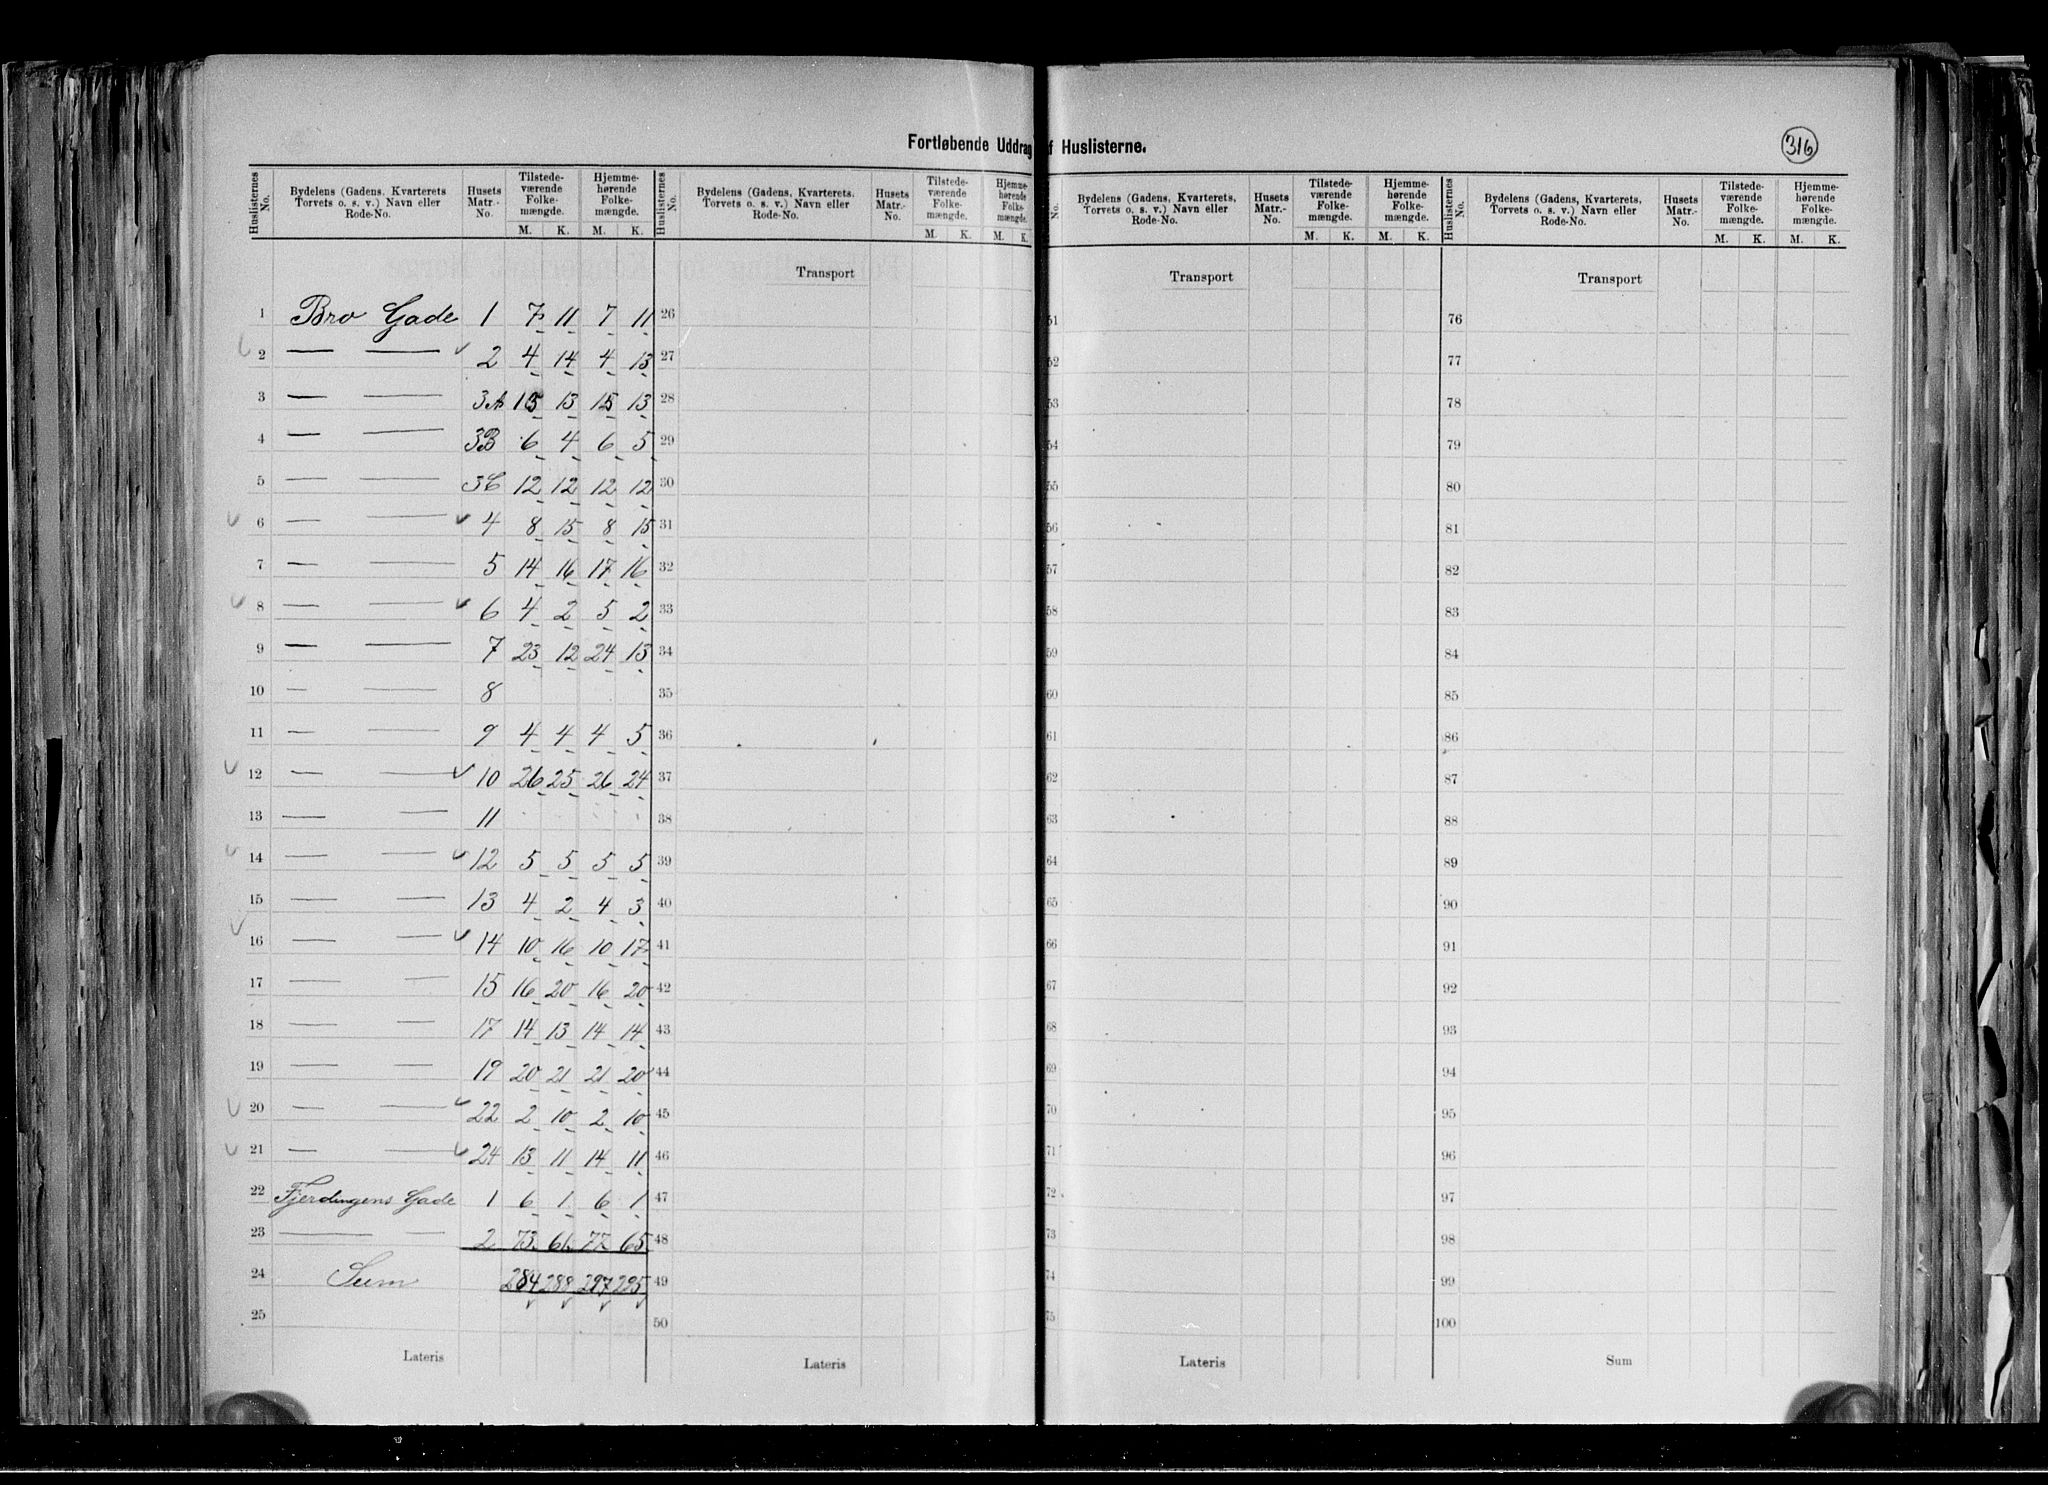 Fortløbende Uddrag af Huslisterne.
316
Huslisternes No. | Bydelens (Gadens, Kvarterets Torvets o. s. v.) Navn eller Rode-No. | Husets Matr.-No. | Tilstede-værende Folke-mængde. M. K. | Hjemme-hørende Folke-mængde. M. K.
Huslisternes No. | Bydelens (Gadens, Kvarterets, Torvets o. s. v.) Navn eller Rode-No. | Husets Matr.-No. | Tilstede-værende Folke-mængde. M. K. | Hjemme-hørende Folke-mængde. M. K.
No. | Bydelens (Gadens, Kvarterets, Torvets o. s. v.) Navn eller Rode-No. | Husets Matr.-No. | Tilstede-værende Folke-mængde. M. K. | Hjemme-hørende Folke-mængde. M. K.
Huslisternes No. | Bydelens (Gadens, Kvarterets, Torvets o. s. v.) Navn eller Rode-No. | Husets Matr.-No. | Tilstede-værende Folke-mængde. M. K. | Hjemme-hørende Folke-mængde. M. K.
Transport Transport Transport
1 Bro Gade 1 7 11 7 11 26 51 76
2 — — 2 4 14 4 13 27 52 77
3 — — 3A 15 13 15 13 28 53 78
4 — — 3B 6 4 6 5 29 54 79
5 — — 3C 12 12 12 12 30 55 80
6 — — 4 8 15 8 15 31 56 81
7 — — 5 14 16 17 16 32 57 82
8 — — 6 4 2 5 2 33 58 83
9 — — 7 23 12 24 13 34 59 84
10 — — 8 35 60 85
11 — — 9 4 4 4 5 36 61 86
12 — — 10 26 25 26 24 37 62 87
13 — — 11 38 63 88
14 — — 12 5 5 5 5 39 64 89
15 — — 13 4 2 4 3 40 65 90
16 — — 14 10 16 10 17 41 66 91
17 — — 15 16 20 16 20 42 67 92
18 — — 17 14 13 14 14 43 68 93
19 — — 19 20 21 21 20 44 69 94
20 — — 22 2 10 2 10 45 70 95
21 — — 24 13 11 14 11 46 71 96
22 Fjerdingens Gade 1 6 1 6 1 47 72 97
23 — — 2 73 61 77 65 48 73 98
24 Sum 284 288 297 295 49 74 99
25 50 75 100
Lateris Lateris Lateris Sum